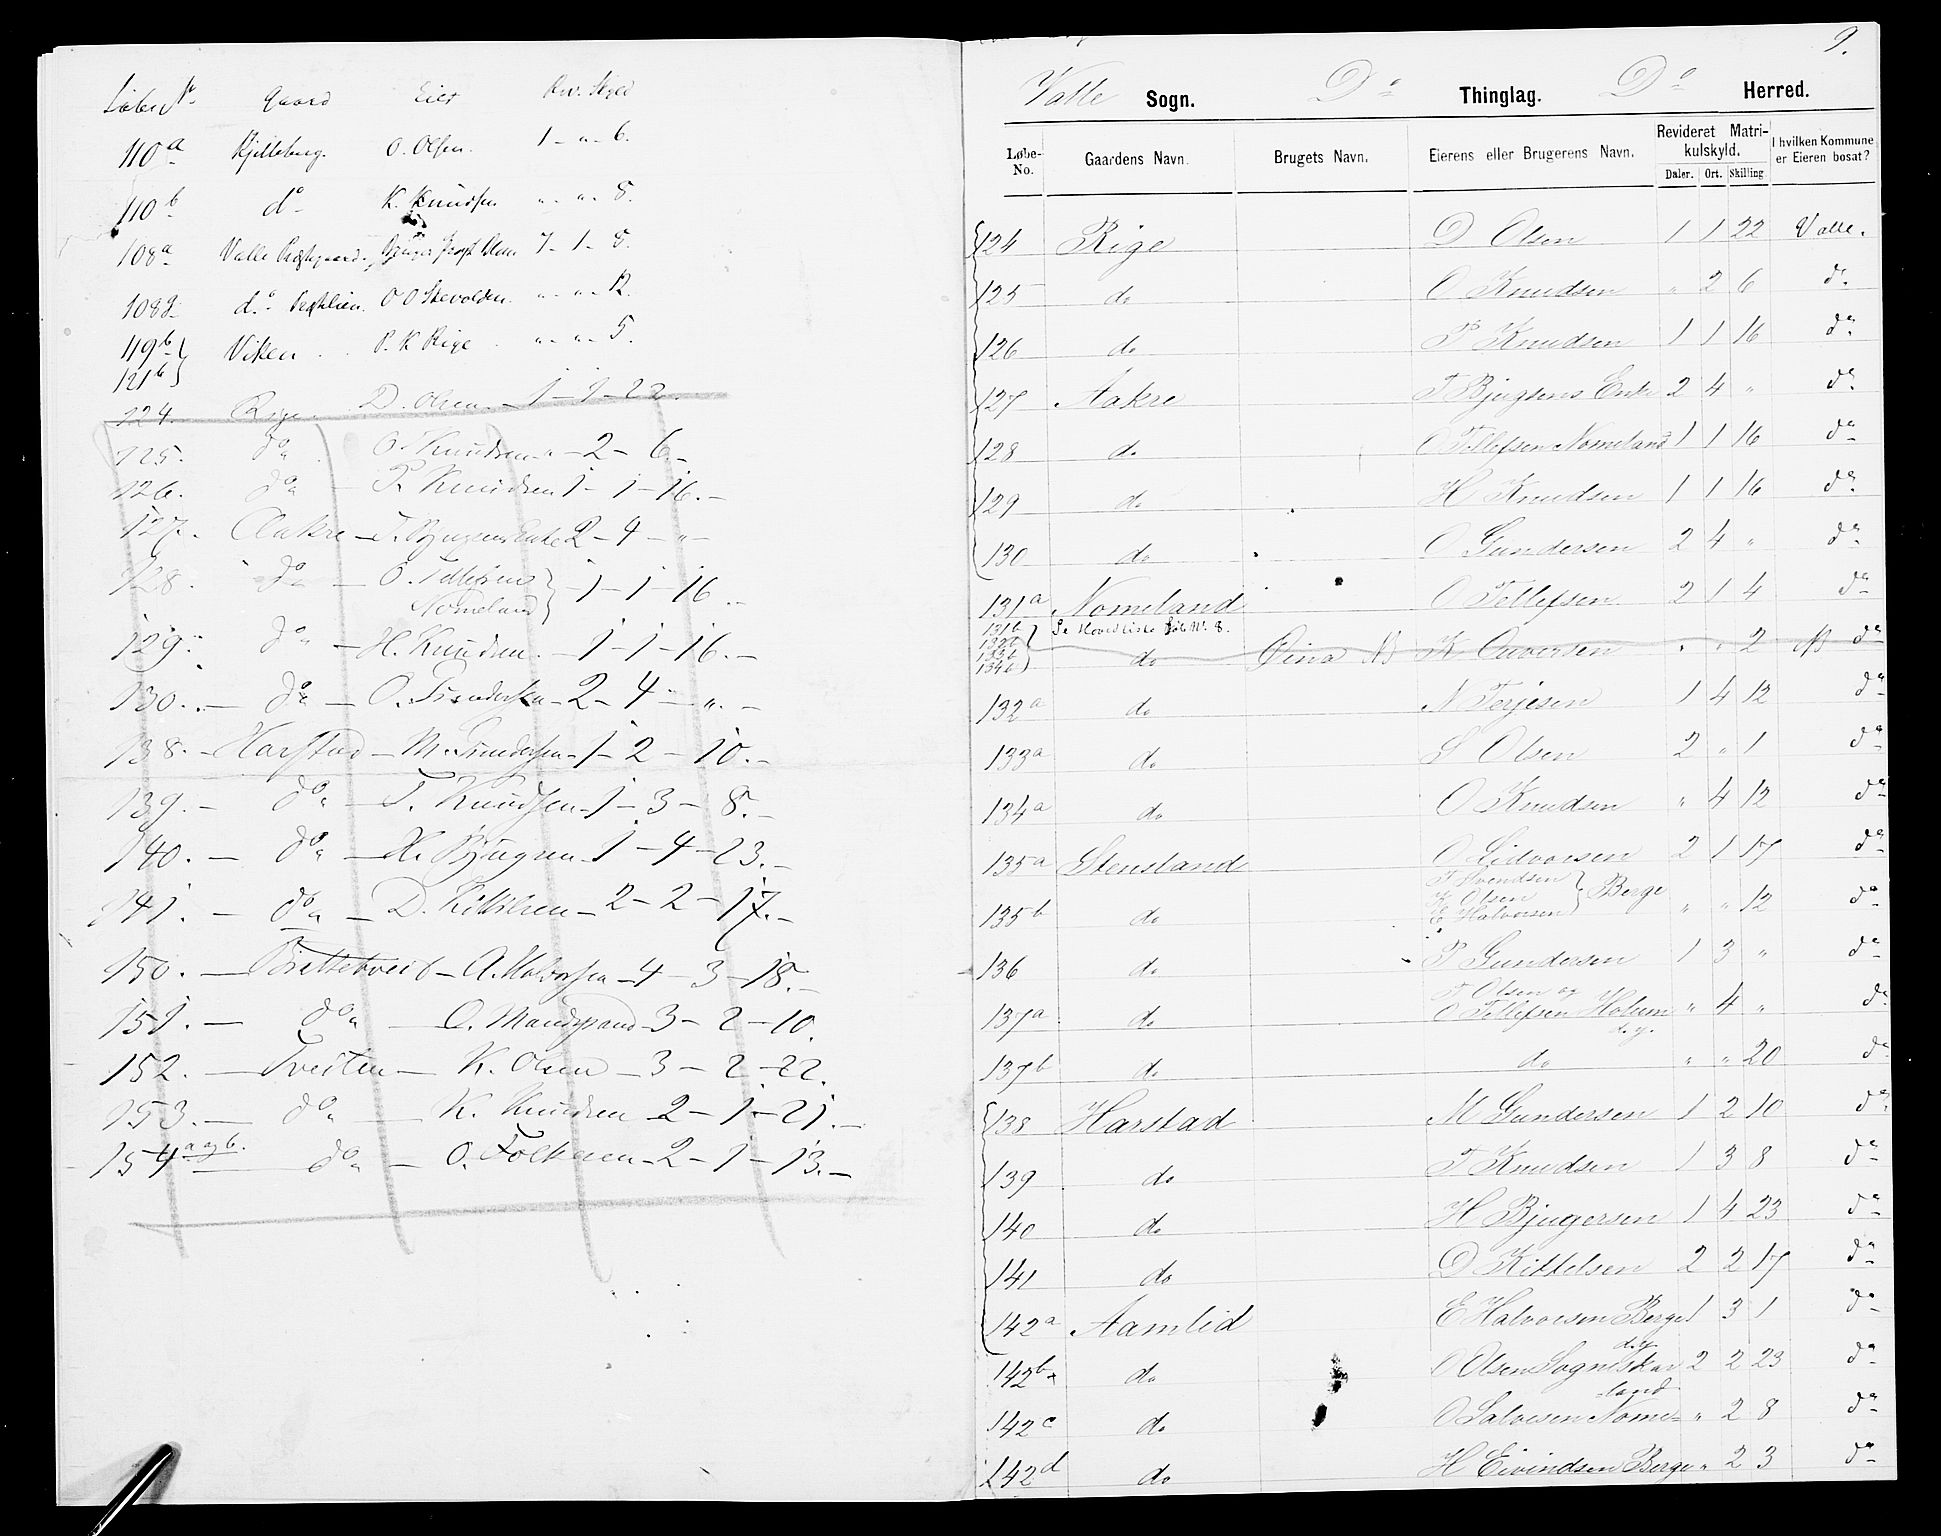 Løbe No Gaard Eier Rev. Skyld
110a Kjelleberg. O. Olsen. 1 - " - 6.
110b do K. Knudsen " - " - 8.
108a Valle Præstegaard. 7 - 1 - 8.
108g do O O Skevolden. " - " - 12.
119b } Viken P. K Rige " - " - 5.
121b }
124. Rige. D. Olsen - 1 - 1 - 22.
125. do O Knudsen " - 2 - 6 -
126. do P. Knudsen 1 - 1 - 16. -
127. Aakre - T. Bjugsens Enke 2 - 4 - " -
128. do - O. Tellefsens } - 1 - 1 - 16 -
Nomeland }
129. do - H. Knudsen. - 1 - 1 - 16. -
130. - do - O. Gundersen - 2 - 4 - " -
138. - Harstad - M. Gundersen - 1 - 2 - 10. -
139. - do - T. Knudsen - 1 - 3 - 8. -
140. - do - H. Bjugsen - 1 - 4 - 23. -
141. - do - D. Kittilsen - 2 - 2 - 17. -
150. - A. Halvorsen - 4 - 3 - 18. -
151. - do - O. - 3 - 2 - 10.
152. - Tveiten - K. Olsen - 3 - 2 - 22.
153. - do - K. Knudsen - 2 - 1 - 21. -
154 a og b. do - O. Folkesen - 2 - 1 - 13. -
9.
Valle Sogn. Do Thinglag. Do Herred.
Løbe-No. Gaardens Navn. Brugets Navn. Eierens eller Brugerens Navn. Revideret Matrikulskyld. I hvilken Kommune er Eieren bosat?
Daler. Ort. Skilling
124 Rige D Olsen 1 1 22 Valle.
125 do O Knudsen " 2 6 do
126 do P Knudsen 1 1 16 do
127 Aakre T Bjugsens Enke 2 4 " do
128 do O Tellefsen Nomeland 1 1 16 do
129 do H Knudsen 1 1 16 do
130 do O Gundersen 2 4 " do
131a Nomeland O Tellefsen 2 1 4 do
131b 132b 133b 134b } Se Hovedliste Løb No. 8.
do K Ouversen " " 2 do
132a do N Terjesen 1 4 12 do
133a do S Olsen 2 " 1 do
134a do O Knudsen " 4 12 do
135a Stensland O Lidvorsen 2 1 17 do
135b do T Svendsen K Olsen E Halvorsen } Berge " " 12 do
136 do P Gundersen 1 3 " do
137a do T Olsen og O Tellefsen Holum d.y. " 4 " do
137b do do " " 20 do
138 Harstad M Gundersen 1 2 10 do
139 do T Knudsen 1 3 8 do
140 do H Bjugersen 1 4 23 do
141 do D Kittelsen 2 2 17 do
142a Aamlid E Halvorsen Berge 1 3 1 do
142b do O Olsen Sogneskar d.y. 2 2 23 do
142c do O Salvesen Nomeland " 2 8 do
142d do H Eivindsen Berge " 2 3 do